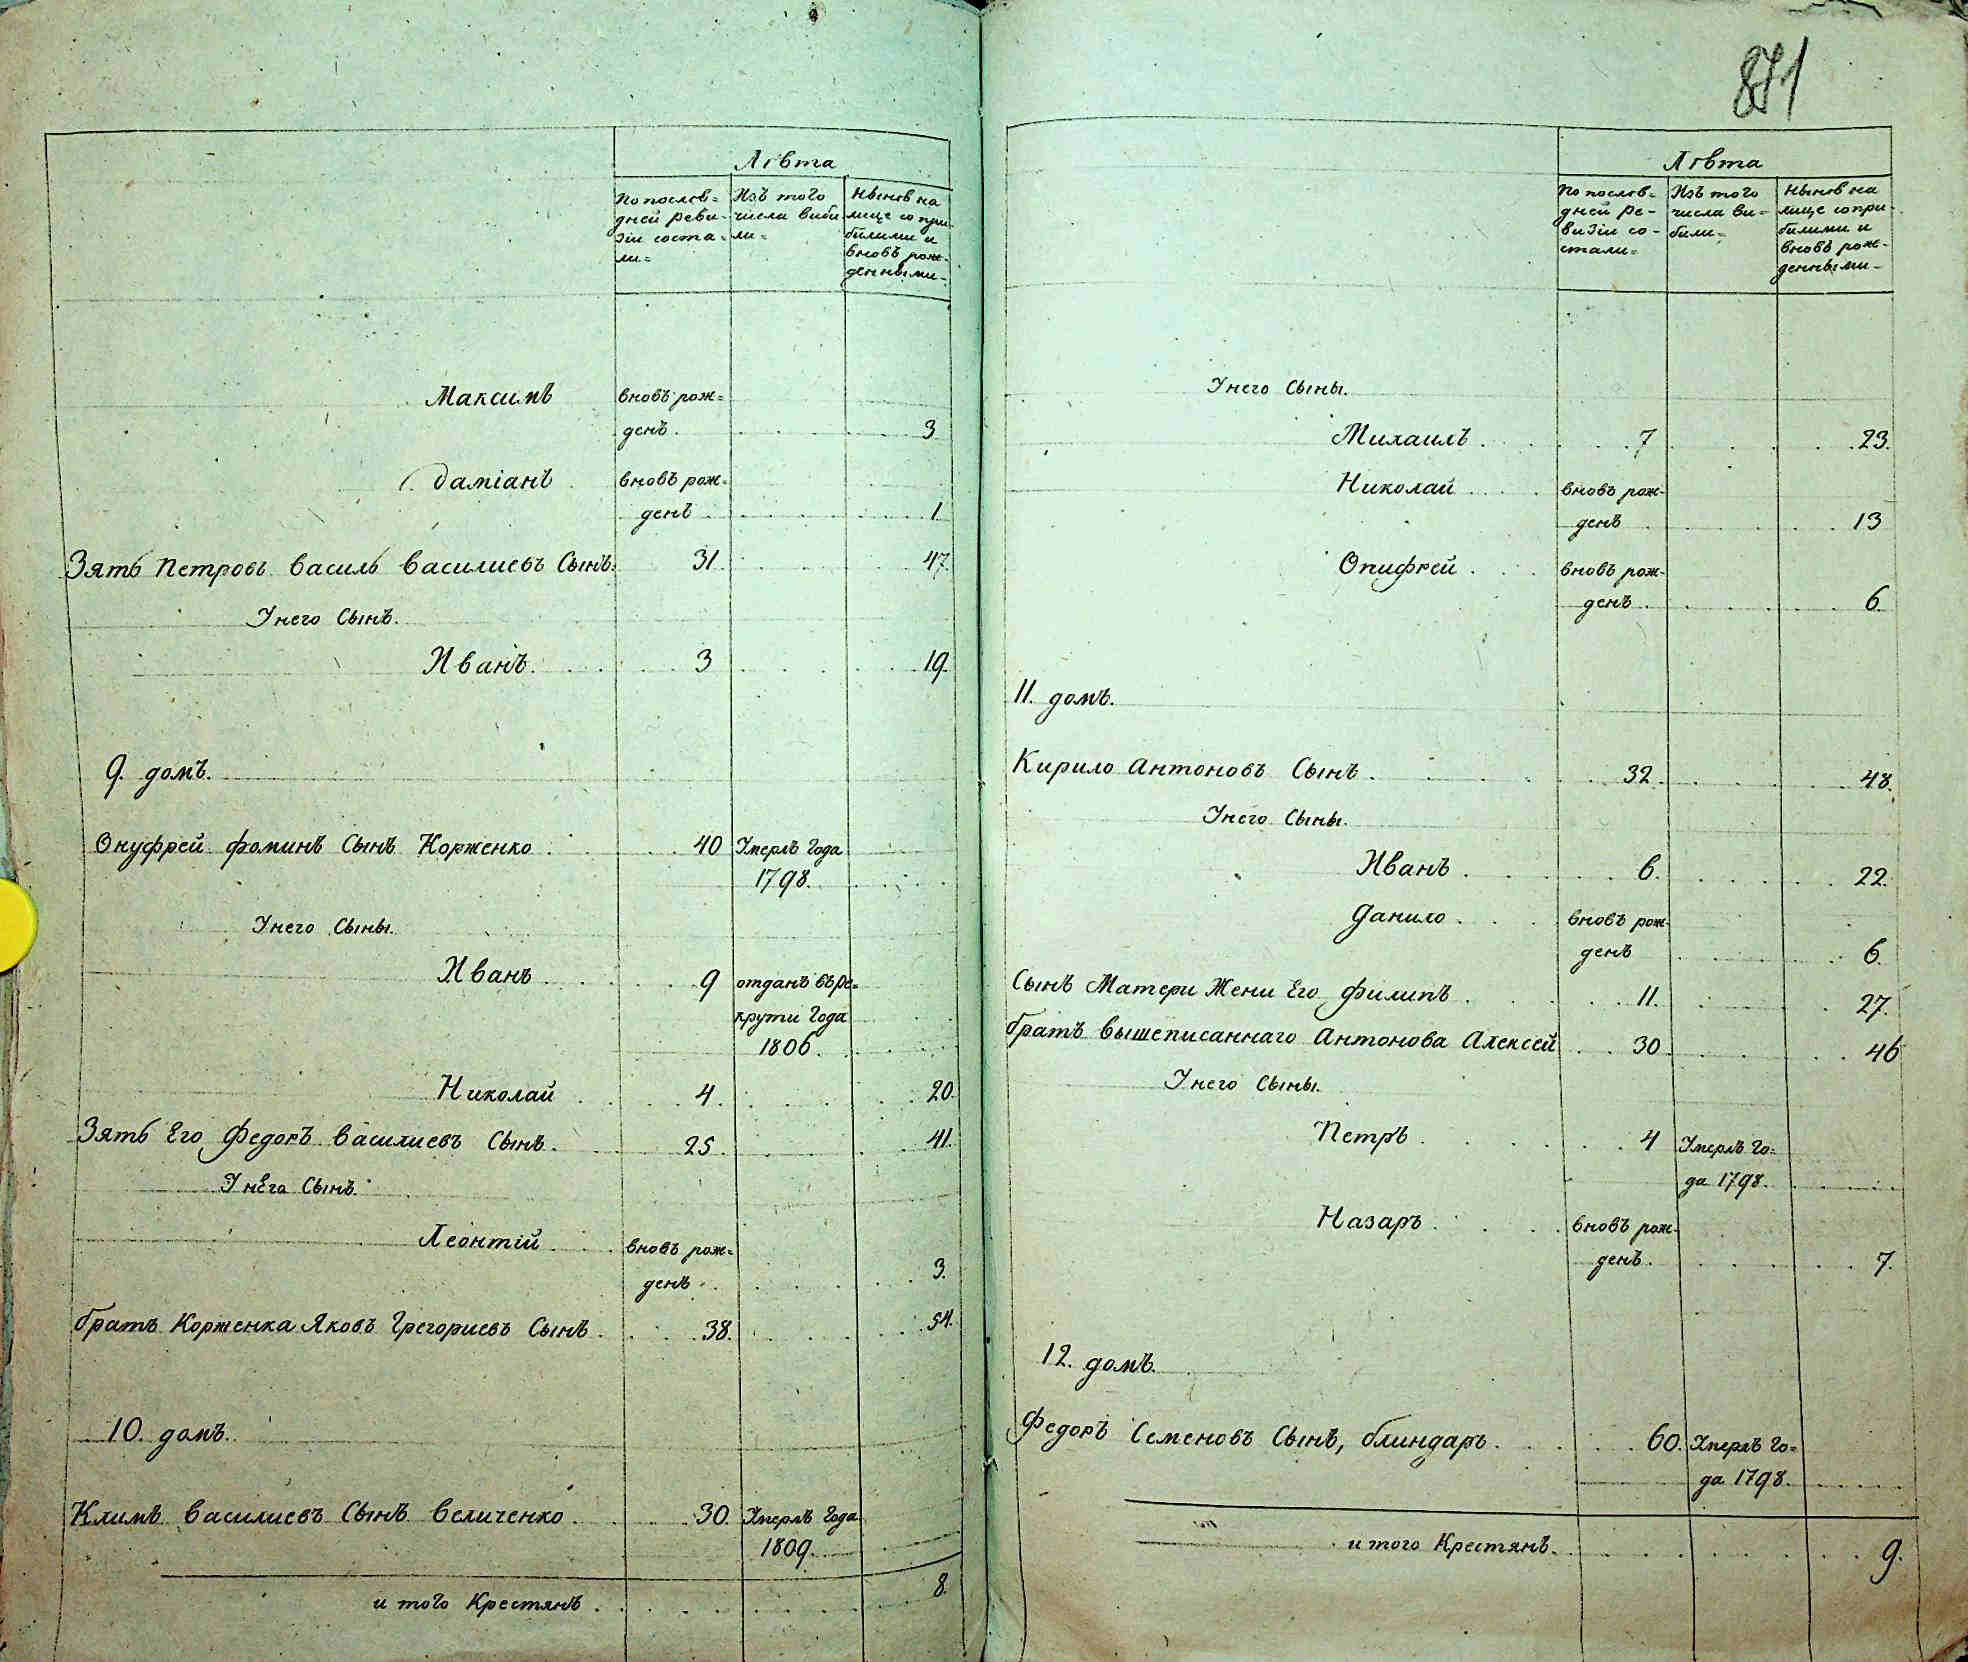 Лѣта
По послѣ=
дней реви-
зіи соста=
ли=
Изъ того
числа выбы
ли=
Нынѣ на
лице с при-
былыми и
вновь рож-
денными-
Максимъ вновь рож=
денъ. 3
Даміанъ вновь рож=
денъ 1
Зять Петровъ Василь Василиевъ Сынъ. 31. 47.
У него Сынъ.
Иванъ. 3 19.
9. домъ.
Онуфрей Фоминъ Сынъ Корженко. 40 Умерлъ Года
1798.
У него Сыны.
Иванъ 9 отданъ въ Ре=
крути Года
1806.
Николай 4. 20.
Зять Его Федоръ Василиевъ Сынъ. 25. 41.
У нЕго Сынъ.
Леонтій вновь рож=
денъ. 3.
братъ Корженка Яковъ Грегориевъ Сынъ. 38. 54.
10. домъ.
Климъ Василиевъ Сынъ Величенко. 30. Умерлъ Года
1809.
и того Крестянъ. 8.
871
Лѣта
По послѣ=
дней Ре-
визіи со-
стали=
Изъ того
числа вы=
были=
Нынѣ на
лице с при-
былыми и
вновь рож-
денными-
У него Сыны.
Михаилъ. 7 23.
Николай вновь рож-
денъ 13
Онифрей. вновь рож-
денъ. 6.
11. домъ.
Кирило Антоновъ Сынъ. 32. 48.
У него Сыны.
Иванъ. 6. 22.
Данило. вновь рож-
денъ 6.
Сынъ Матери Жени Его Филипъ. 11. 27.
братъ вышеписаннаго Антонова Алексей 30. 46
У него Сыны.
Петръ. 4 Умерлъ Го=
да 1798.
Назаръ. вновь рож-
денъ. 7.
12. домъ.
Федоръ Семеновъ Сынъ, блиндаръ. 60. Умерлъ Го=
да 1798.
и того Крестянъ. 9.